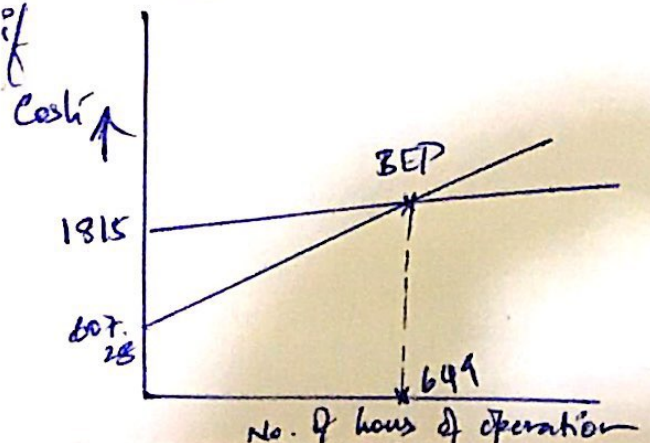 if
Cost ↑
BEP
1815
607.
28
649
No. of hours of operation